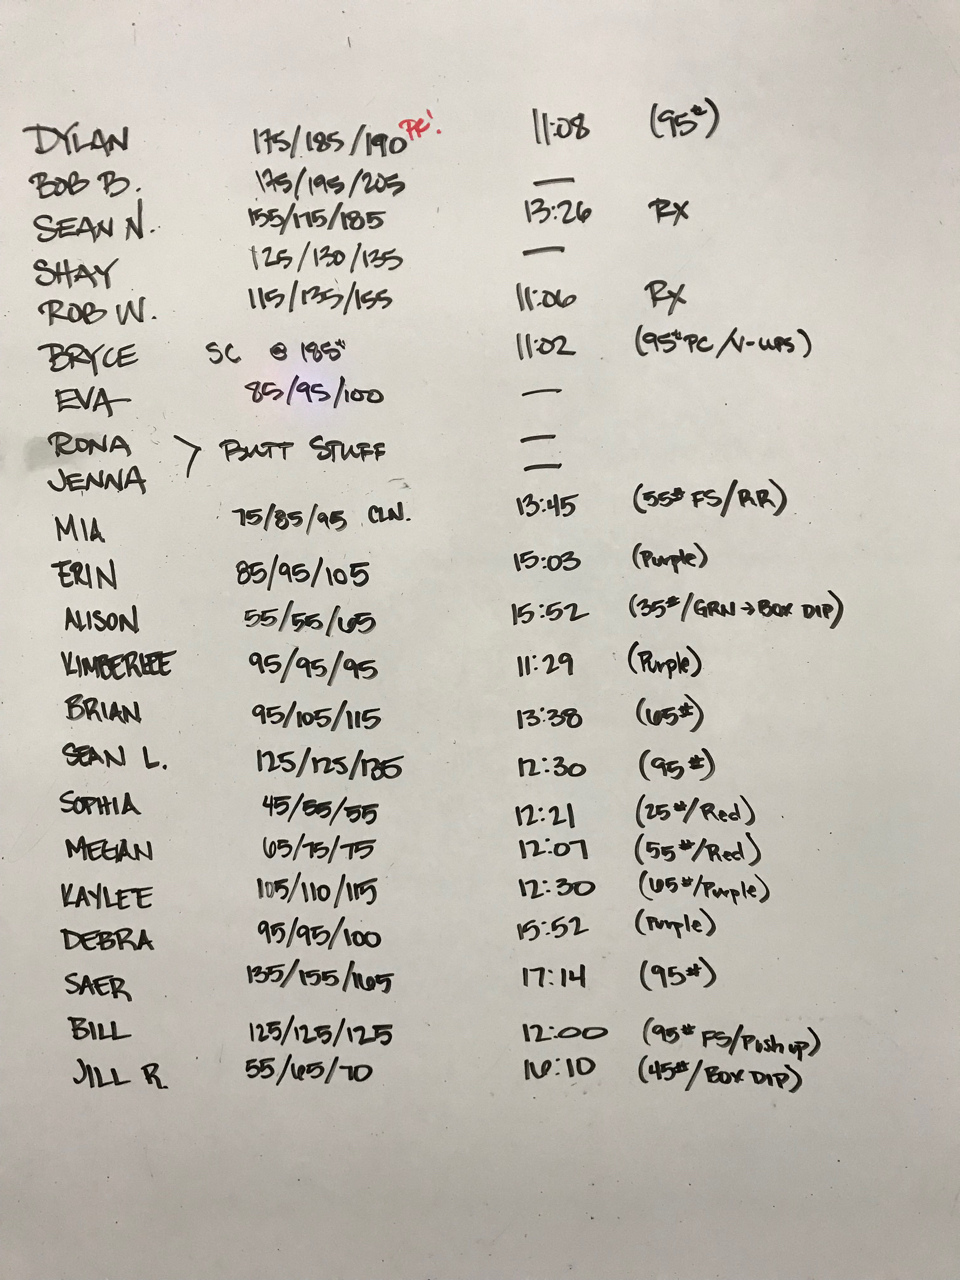 DYLAN 175/185/190 PR! 11:08 (95#)
BOB B. 175/195/205 —
SEAN N. 155/175/185 13:26 RX
SHAY 125/130/135 —
ROB W. 115/135/155 11:06 RX
BRYCE SC @ 185# 11:02 (95# PC/V-UPS)
EVA 85/95/100 —
RONA > BUTT STUFF —
JENNA —
MIA 75/85/95 CLN. 13:45 (55# FS/RR)
ERIN 85/95/105 15:03 (Purple)
ALISON 55/55/65 15:52 (35#/GRN→BOX DIP)
KIMBERLEE 95/95/95 11:29 (Purple)
BRIAN 95/105/115 13:38 (65#)
SEAN L. 125/125/135 12:30 (95#)
SOPHIA 45/55/55 12:21 (25#/Red)
MEGAN 65/75/75 12:07 (55#/Red)
KAYLEE 105/110/115 12:30 (65#/Purple)
DEBRA 95/95/100 15:52 (Purple)
SAER 135/155/165 17:14 (95#)
BILL 125/125/125 12:00 (95# FS/Push up)
JILL R. 55/65/70 16:10 (45#/BOX DIP)